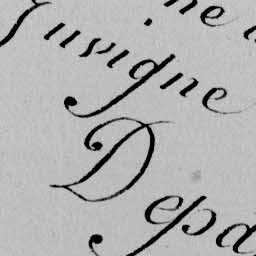 ne
Juvigne
Depa